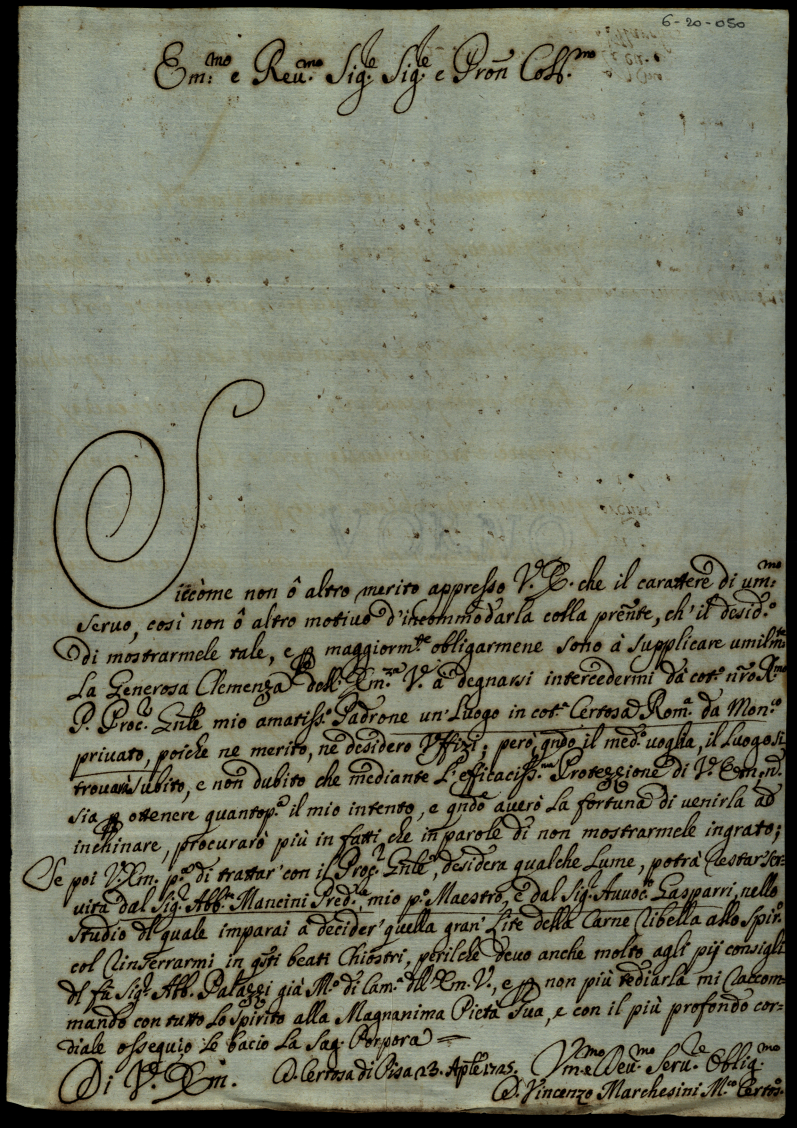 6-20-050
Em:mo e Reu:mo Sig:re Sig:re e Pron Coll:mo
Siccome non ô altro merito appresso V.E. che il carattere di um:mo
Seruo, così non ô altro motiuo d'incommodarla colla prente, ch'il desid:o
di mostrarmele tale, e maggiorm:te obligarmene sono à supplicare umilm:te
La Generosa Clemenza dell' Em:za V:a à degnarsi intercedermi dà cot:o nro R:mo
P. Proc:r Gnle mio amatiss:o Padrone un' Luogo in cot:a Certosa di Rom:a da Mon:o
priuato, poiche ne merito, ne desidero Vffizi; però, qndo il med:o uoglia, il Luogo si
trouarà subito, e non dubito che mediante L'efficaciss:ma Protezzione di V. Em:
sia p ottenere quantop:a il mio intento, e qndo auerò La fortuna di uenirla ad
inchinare, procurarò più in fatti che in parole di non mostrarmele ingrato;
Se poi V.Em. p:a di trattar' con il Proc:r Gnle, desidera qualche Lume, potrà restar ser-
uita dal Sig:r Abb:e Mancini Pred:a, mio p:o Maestro, e dal Sig:r Auuoc:o Gasparri, nello
studio dl quale imparai à decider' quella gran' Lite della Carne ribella allo Spir:o
col rinserrarmi in qsti beati Chiostri, perilche deuo anche molto agli pij consigli
dl fù Sig:r Abb. Palazzi già M:o di Cam:a dll' Em. V., e p non più tediarla mi raccom-
mando con tutto Lo spirito alla Magnanima Pietà Sua, e con il più profondo cor-
diale ossequio Le bacio La Sag: Porpora
Di V. Em. D. Certosa di Pisa 23. Aple 1725. Vm:mo e Deu:mo Seru:re Oblig:mo
D. Vincenzo Marchesini M:co Certos:o